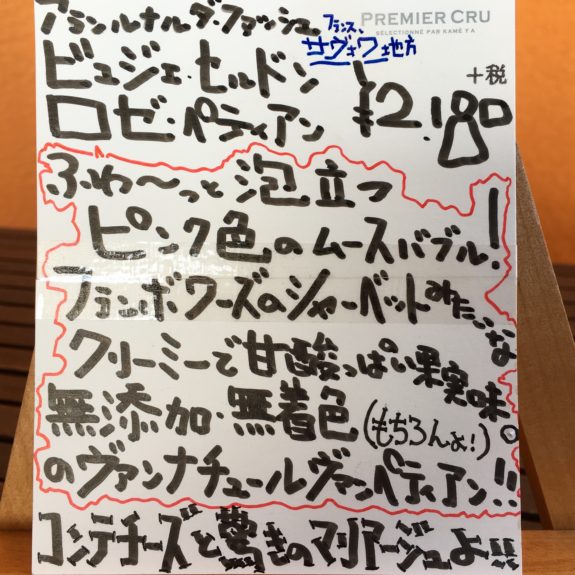 アランルナルダ・ファッシュ、
フランス、
サヴォワ地方
PREMIER CRU
SÉLECTIONNÉ PAR KAMÉYA
ビュジェ・セルドン
ロゼ・ペティアン
¥2.180
+税
ふわ〜っと泡立つ
ピンク色のムースバブル!
フランボワーズのシャーベットみたいな
クリーミーで甘酸っぱい果実味。
無添加・無着色(もちろんよ!)
のヴァンナチュールヴァンペティアン!!
コンテチーズと驚きのマリアージュよ!!